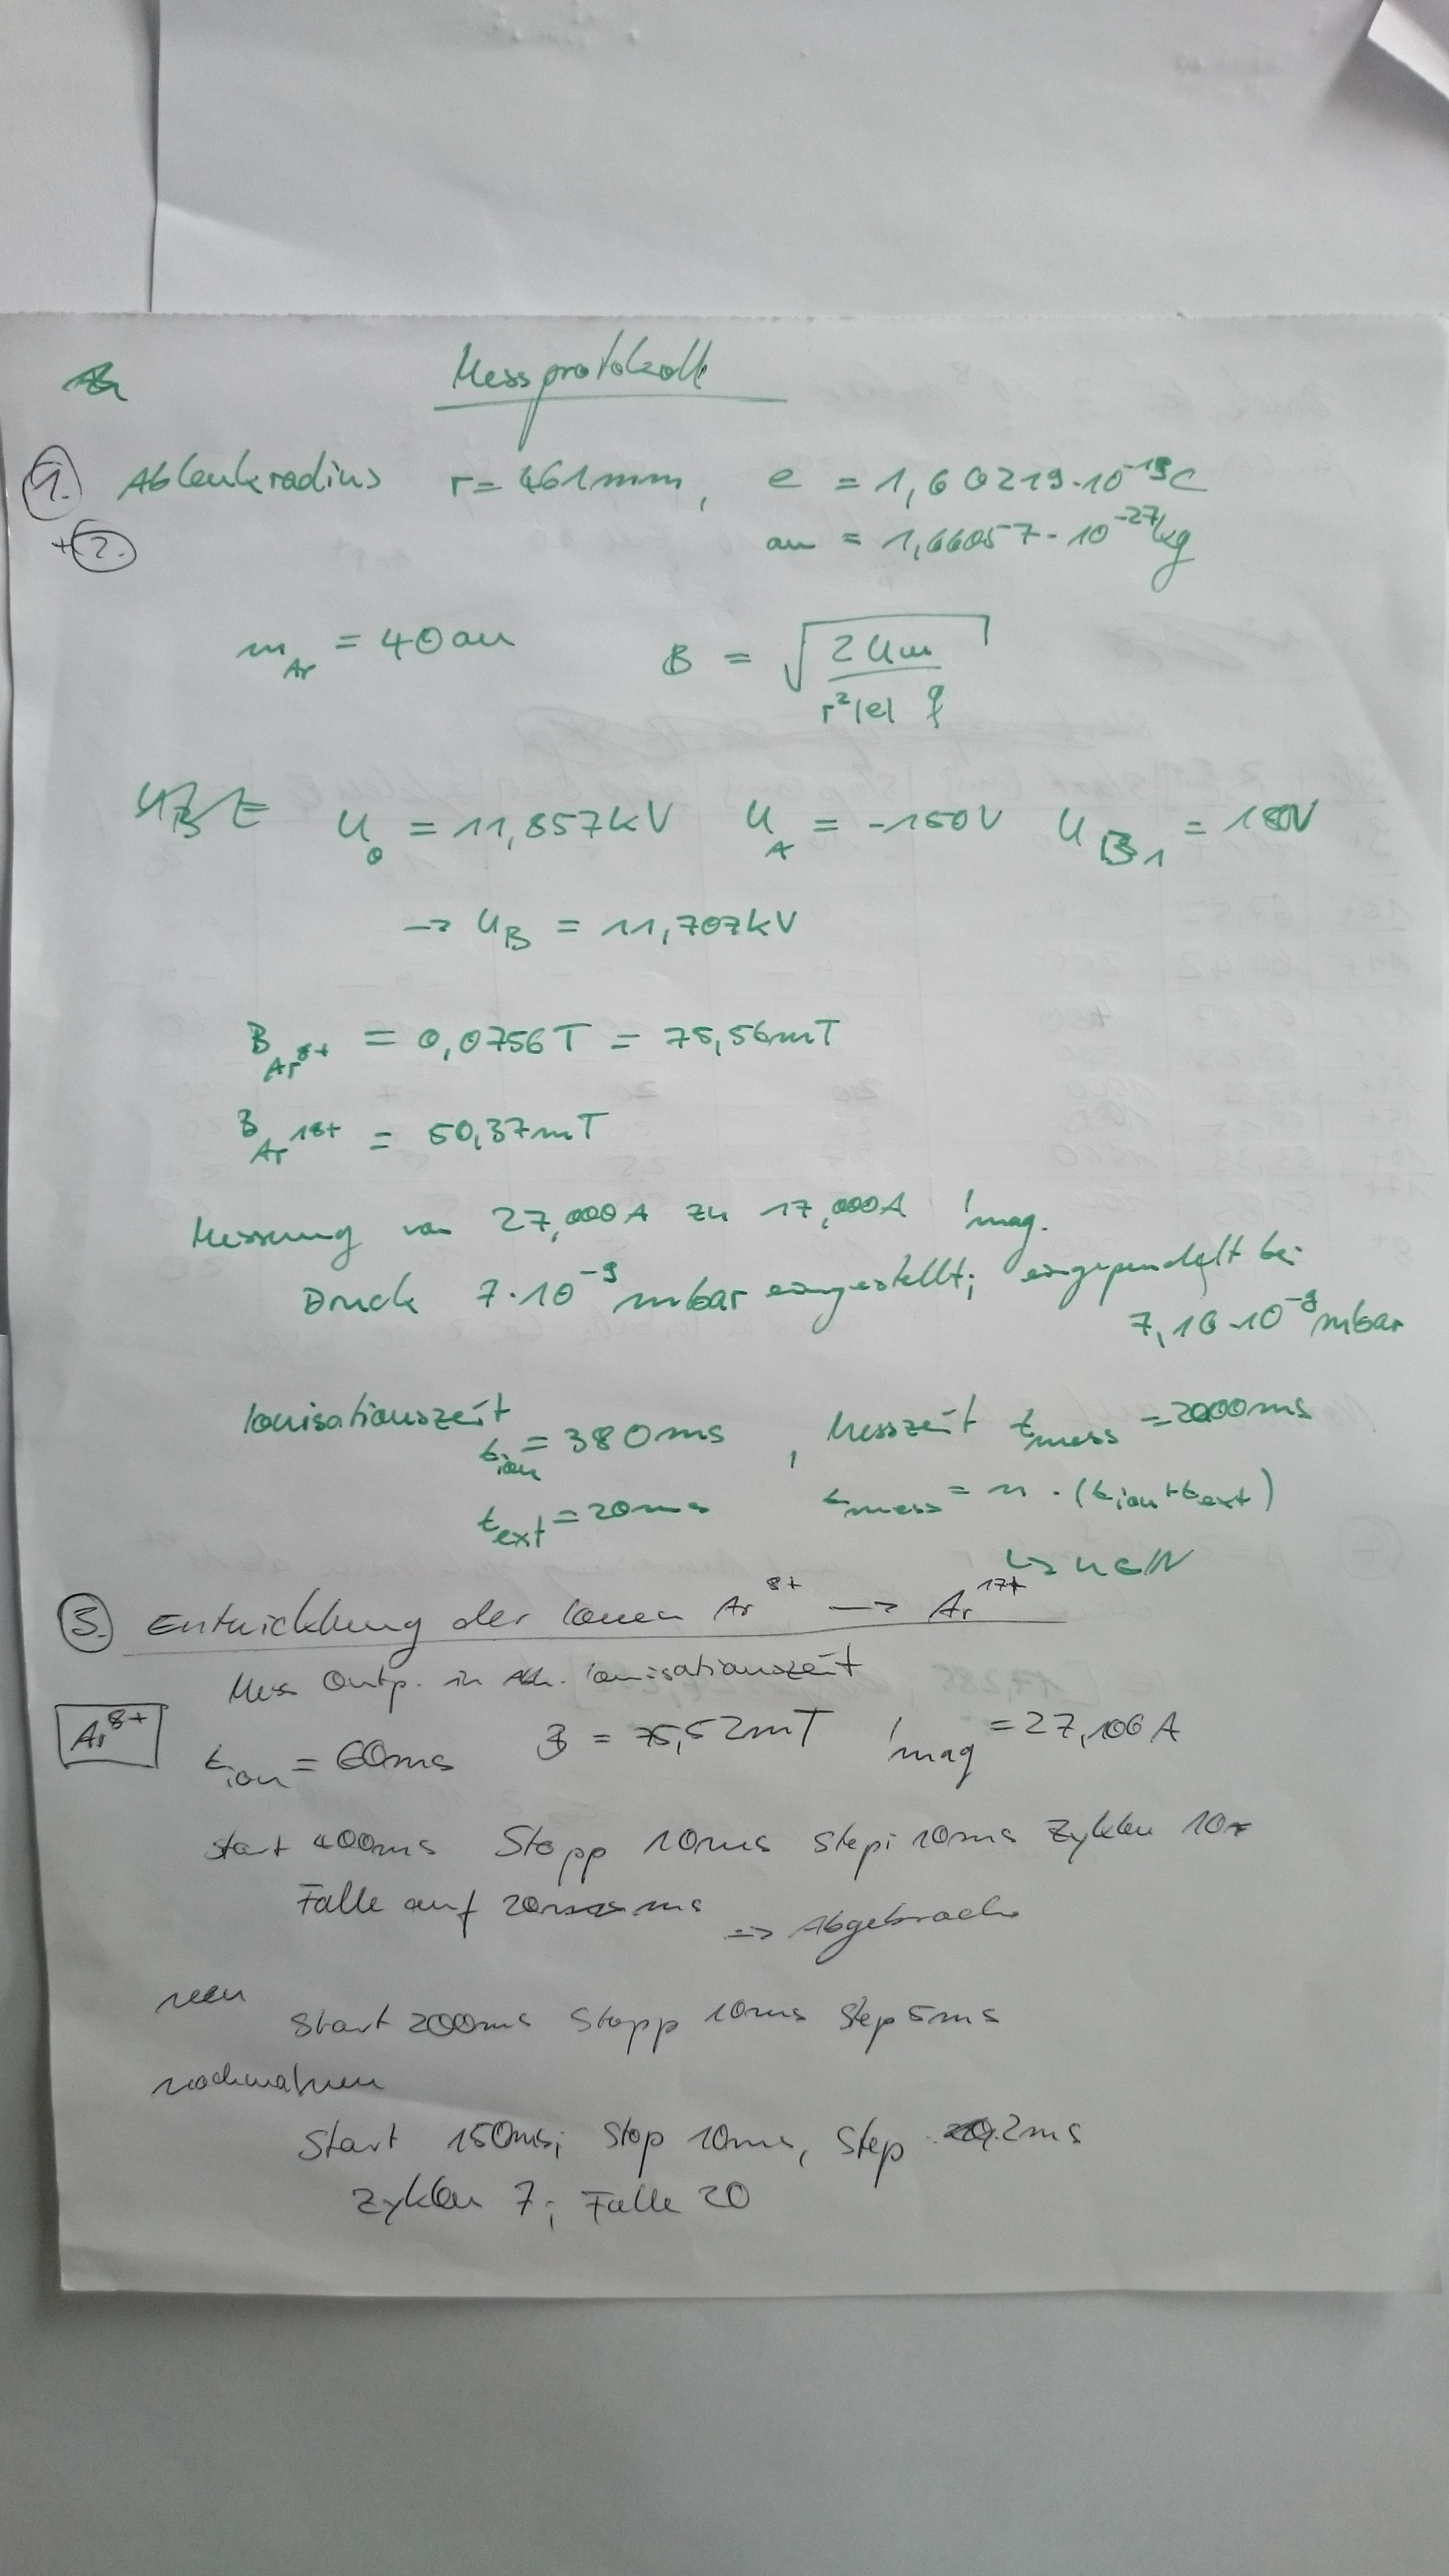 Messprotokoll
1. Ablenkradius r = 461mm, e = 1,60219·10⁻¹⁹C
+2. au = 1,66057·10⁻²⁷kg
m_Ar = 40au B = √(2Um / r²|e| q)
U₀ = 11,857kV U_A = -150V U_B1 = 180V
→ U_B = 11,707kV
B_Ar⁸⁺ = 0,0756T = 75,56mT
B_Ar¹⁸⁺ = 50,37mT
Messung von 27,000A zu 17,000A I_mag.
Druck 7·10⁻⁹ mbar eingestellt; eingependelt bei
7,16·10⁻⁹ mbar
Ionisationszeit t_ion = 380ms, Messzeit t_mess = 2000ms
t_ext = 20ms t_mess = n·(t_ion+t_ext)
↳ n∈ℕ
3. Entwicklung der Ionen Ar⁸⁺ → Ar¹⁷⁺
Mess Outp. in Abh. Ionisationszeit
Ar⁸⁺ t_ion = 60ms B = 75,52mT I_mag = 27,106A
Start 400ms Stopp 10ms Step: 10ms Zyklen 10
Falle auf 20 ms ⇒ Abgebrochen
neu
Start 200ms Stopp 10ms Step 5ms
nochmal neu
Start 150ms; Stop 10ms, Step 2ms
Zyklen 7; Falle 20